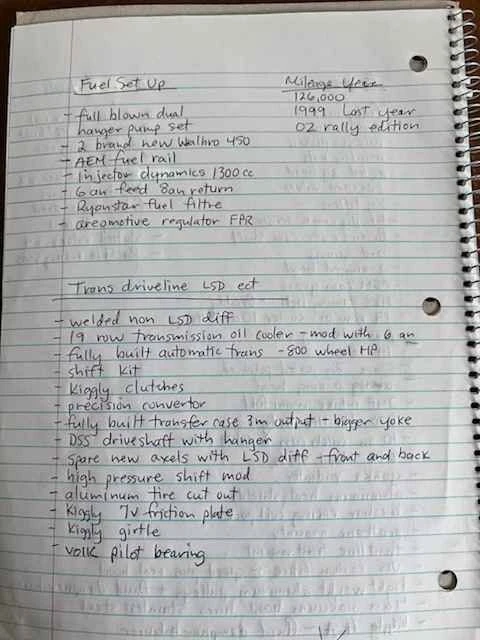 Fuel Set Up
- full blown dual
hanger pump set
- 2 brand new Walbro 450
- AEM fuel rail
- Injector dynamics 1300cc
- 6 an feed 8an return
- Ryanstar fuel filtre
- areomotive regulator FPR
Mileage Year
126,000
1999 Last year
02 rally edition
Trans driveline LSD ect
- welded non LSD diff
- 19 row transmission oil cooler - mod with 6 an
- fully built automatic trans - 800 wheel HP
- shift kit
- Kiggly clutches
- precision convertor
- fully built transfer case 3m output - bigger yoke
- DSS driveshaft with hanger
- spare new axels with LSD diff - front and back
- high pressure shift mod
- aluminum tire cut out
- Kiggly 7v friction plate
- Kiggly girtle
- volk pilot bearing